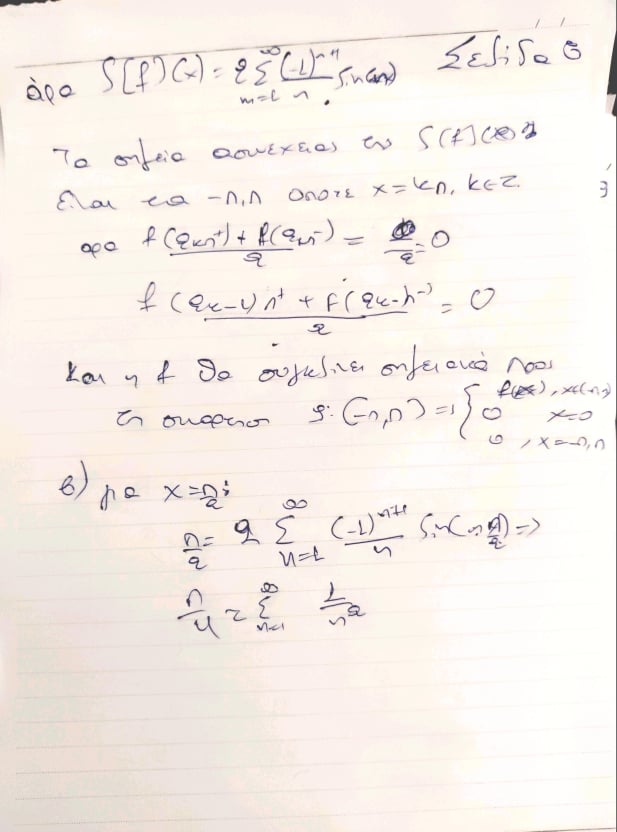 άρα S[f](x) = 2 Σ_{m=1}^{∞} (-1)^{n+1}/n sin(nx) Σελίδα 5
Τα σημεία ασυνέχειας της S[f](x)
είναι τα -π, π οπότε x = kπ, k∈Z.
άρα f(2kπ⁺) + f(2kπ⁻) / 2 = 0/2 = 0
f(2k-1)π⁺ + f(2k-1)π⁻ / 2 = 0
και η f θα συγκλίνει σημειακά προς
τη συνάρτηση g: (-π, π) => { f(x), x∈(-π,π)
0 x=0
0, x=-π,π
β) για x = π/2:
π/2 = 2 Σ_{n=1}^{∞} (-1)^{n+1}/n sin(nπ/2) =>
π/4 = Σ_{n=1}^{∞} 1/n²